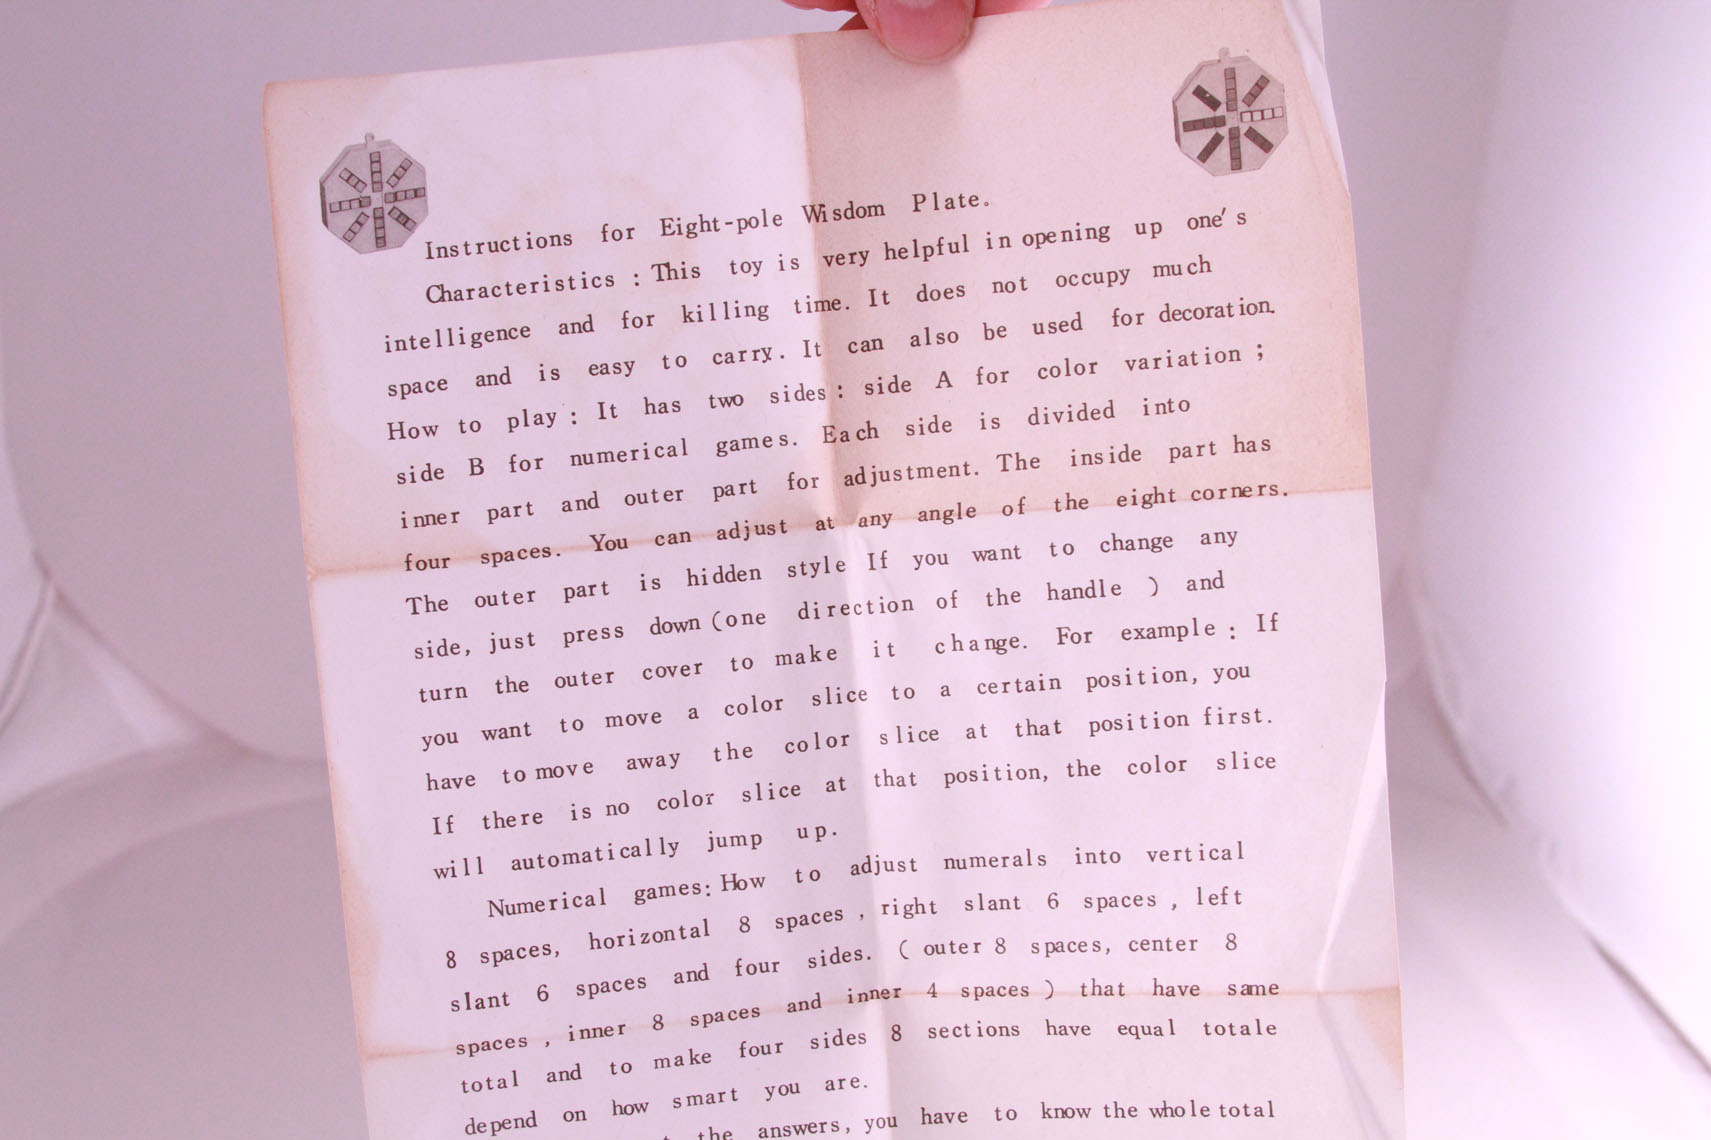 Instructions for Eight-pole Wisdom Plate。
Characteristics : This toy is very helpful in opening up one's
intelligence and for killing time. It does not occupy much
space and is easy to carry. It can also be used for decoration.
How to play : It has two sides : side A for color variation ;
side B for numerical games. Each side is divided into
inner part and outer part for adjustment. The inside part has
four spaces. You can adjust at any angle of the eight corners.
The outer part is hidden style If you want to change any
side, just press down (one direction of the handle ) and
turn the outer cover to make it change. For example : If
you want to move a color slice to a certain position, you
have to move away the color slice at that position first.
If there is no color slice at that position, the color slice
will automatically jump up.
Numerical games: How to adjust numerals into vertical
8 spaces, horizontal 8 spaces , right slant 6 spaces , left
slant 6 spaces and four sides. ( outer 8 spaces, center 8
spaces , inner 8 spaces and inner 4 spaces ) that have same
total and to make four sides 8 sections have equal totale
depend on how smart you are.
the answers, you have to know the whole total